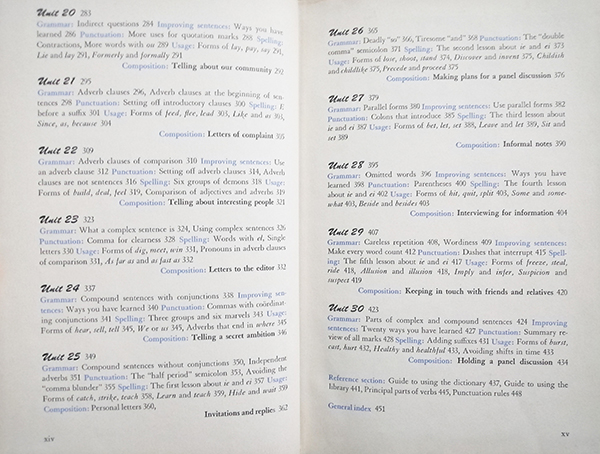 Unit 20 283
Grammar: Indirect questions 284 Improving sentences: Ways you have
learned 286 Punctuation: More uses for quotation marks 288 Spelling:
Contractions, More words with ou 289 Usage: Forms of lay, pay, say 291,
Lie and lay 291, Formerly and formally 291
Composition: Telling about our community 292
Unit 21 295
Grammar: Adverb clauses 296, Adverb clauses at the beginning of sen-
tences 298 Punctuation: Setting off introductory clauses 300 Spelling: E
before a suffix 301 Usage: Forms of feed, flee, lead 303, Like and as 303,
Since, as, because 304
Composition: Letters of complaint 305
Unit 22 309
Grammar: Adverb clauses of comparison 310 Improving sentences: Use
an adverb clause 312 Punctuation: Setting off adverb clauses 314, Adverb
clauses are not sentences 316 Spelling: Six groups of demons 318 Usage:
Forms of build, deal, feel 319, Comparison of adjectives and adverbs 319
Composition: Telling about interesting people 321
Unit 23 323
Grammar: What a complex sentence is 324, Using complex sentences 326
Punctuation: Comma for clearness 328 Spelling: Words with el, Single
letters 330 Usage: Forms of dig, meet, win 331, Pronouns in adverb clauses
of comparison 331, As far as and as fast as 332
Composition: Letters to the editor 332
Unit 24 337
Grammar: Compound sentences with conjunctions 338 Improving sen-
tences: Ways you have learned 340 Punctuation: Commas with coördinat-
ing conjunctions 341 Spelling: Three groups and six marvels 343 Usage:
Forms of hear, sell, tell 345, We or us 345, Adverbs that end in where 345
Composition: Telling a secret ambition 346
Unit 25 349
Grammar: Compound sentences without conjunctions 350, Independent
adverbs 351 Punctuation: The "half period" semicolon 353, Avoiding the
"comma blunder" 355 Spelling: The first lesson about ie and ei 357 Usage:
Forms of catch, strike, teach 358, Learn and teach 359, Hide and wait 359
Composition: Personal letters 360,
Invitations and replies 362
xiv
Unit 26 365
Grammar: Deadly "so" 366, Tiresome "and" 368 Punctuation: The "double
comma" semicolon 371 Spelling: The second lesson about ie and ei 373
Usage: Forms of lose, shoot, stand 374, Discover and invent 375, Childish
and childlike 375, Precede and proceed 375
Composition: Making plans for a panel discussion 376
Unit 27 379
Grammar: Parallel forms 380 Improving sentences: Use parallel forms 382
Punctuation: Colons that introduce 385 Spelling: The third lesson about
ie and ei 387 Usage: Forms of bet, let, set 388, Leave and let 389, Sit and
set 389
Composition: Informal notes 390
Unit 28 395
Grammar: Omitted words 396 Improving sentences: Ways you have
learned 398 Punctuation: Parentheses 400 Spelling: The fourth lesson
about ie and ei 402 Usage: Forms of hit, quit, split 403, Some and some-
what 403, Beside and besides 403
Composition: Interviewing for information 404
Unit 29 407
Grammar: Careless repetition 408, Wordiness 409 Improving sentences:
Make every word count 412 Punctuation: Dashes that interrupt 415 Spell-
ing: The fifth lesson about ie and ei 417 Usage: Forms of freeze, steal,
ride 418, Allusion and illusion 418, Imply and infer, Suspicion and
suspect 419
Composition: Keeping in touch with friends and relatives 420
Unit 30 423
Grammar: Parts of complex and compound sentences 424 Improving
sentences: Twenty ways you have learned 427 Punctuation: Summary re-
view of all marks 428 Spelling: Adding suffixes 431 Usage: Forms of burst,
cast, hurt 432, Healthy and healthful 433, Avoiding shifts in time 433
Composition: Holding a panel discussion 434
Reference section: Guide to using the dictionary 437, Guide to using the
library 441, Principal parts of verbs 445, Punctuation rules 448
General index 451
xv